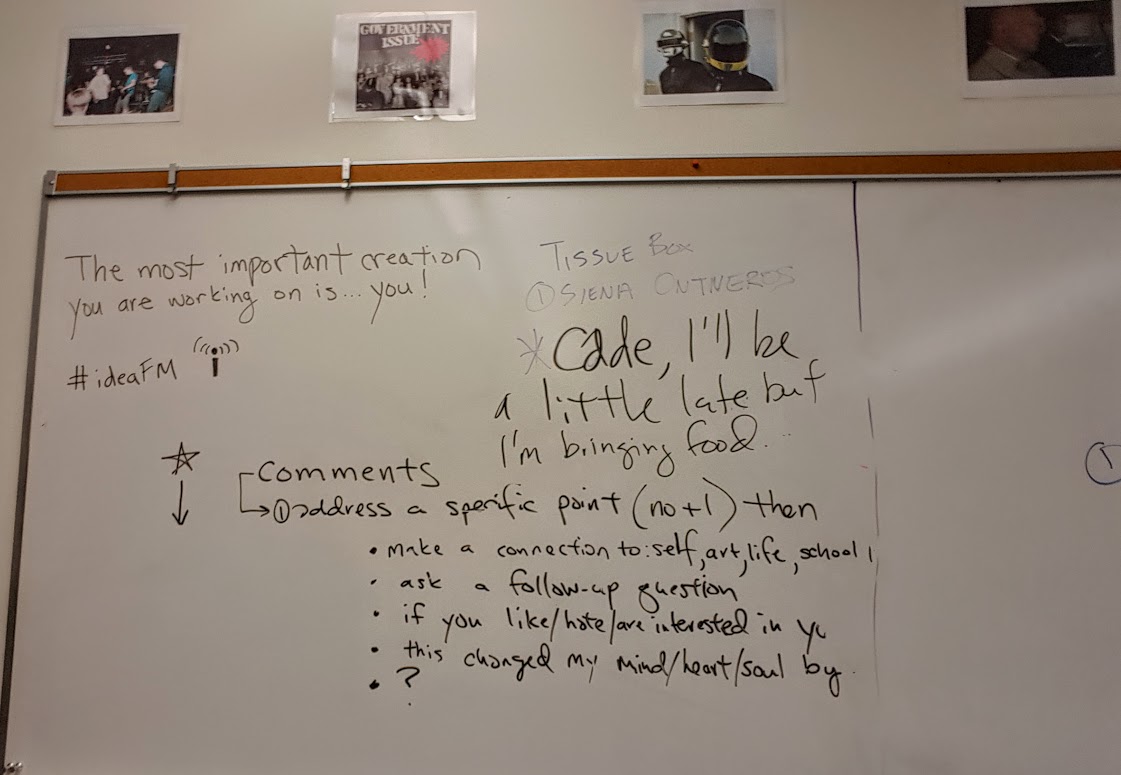 GOVERNMENT
ISSUE
The most important creation
you are working on is... you!
#ideaFM
Tissue Box
① Siena
* Cade, I'll be
a little late but
I'm bringing food...
Comments
→ ① address a specific point (no +1) then
• make a connection to: self, art, life, school
• ask a follow-up question
• if you like/hate/are interested in
• this changed my mind/heart/soul by
• ?
①